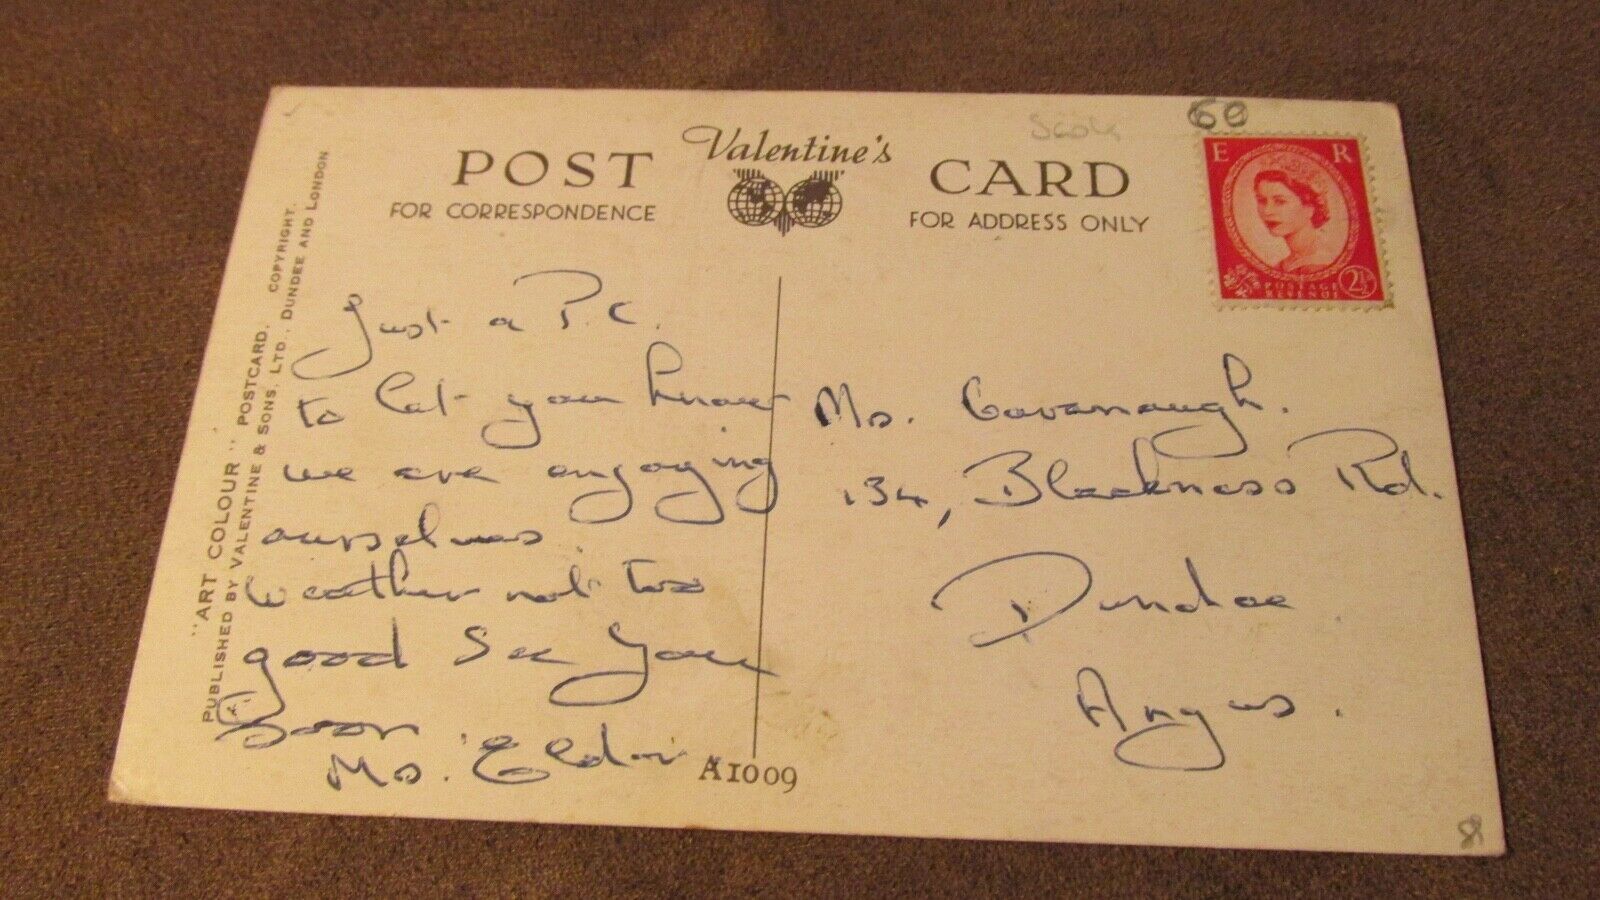 "ART COLOUR" POSTCARD. COPYRIGHT.
PUBLISHED BY VALENTINE & SONS, LTD., DUNDEE AND LONDON
60
Valentine's
POST CARD
FOR CORRESPONDENCE
FOR ADDRESS ONLY
E R
POSTAGE
REVENUE
2½
Just a P.C.
to let you know
we are enjoying
ourselves.
Weather not too
good See you
Soon
Ms.
A1009
Ms. Cavanaugh.
134, Blackness Rd.
Dundee
Angus.